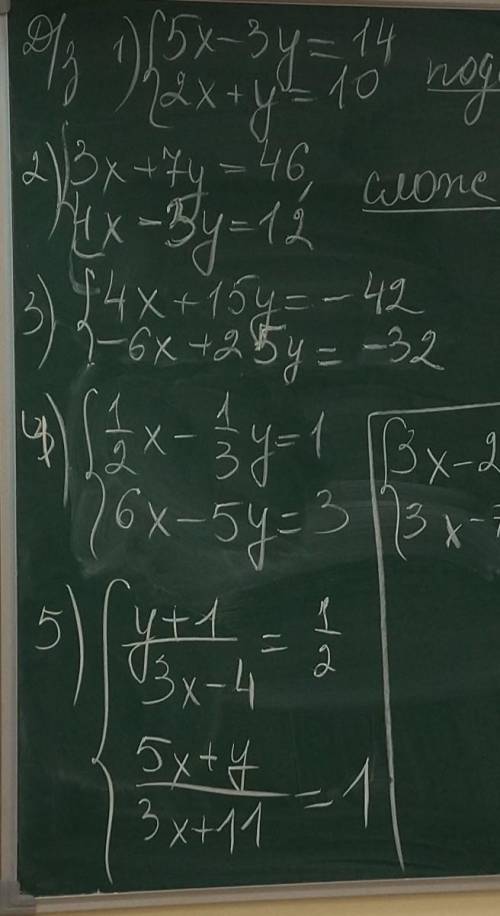 Д/з 1) { 5x-3y=14
2x+y=10 под
2) { 3x+7y=46,
4x-5y=12 сложе
3) { 4x+15y=-42
-6x+25y=-32
4) { 1/2 x - 1/3 y=1
6x-5y=3
{ 3x-2
3x-7
5) { y+1 / 3x-4 = 1/2
5x+y / 3x+11 = 1